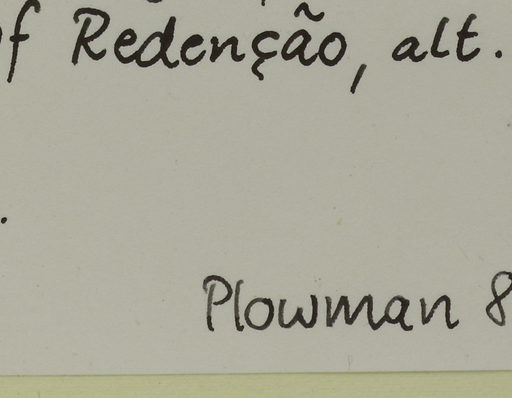 of Redenção, alt.
.
Plowman 8